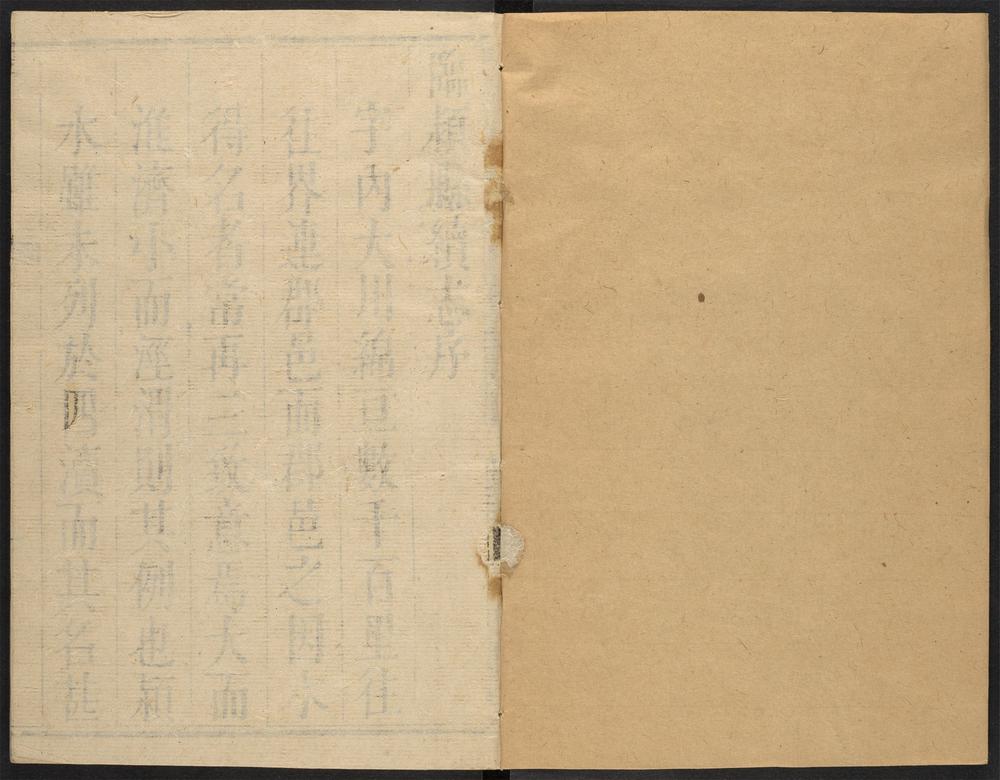 臨潁縣續志序
宇内大川綿亘數千百里往
往界連郡邑而郡邑之因水
得名者當再三致意焉大而
淮濟小而涇渭則其例也潁
水雖未列於四瀆而其名甚